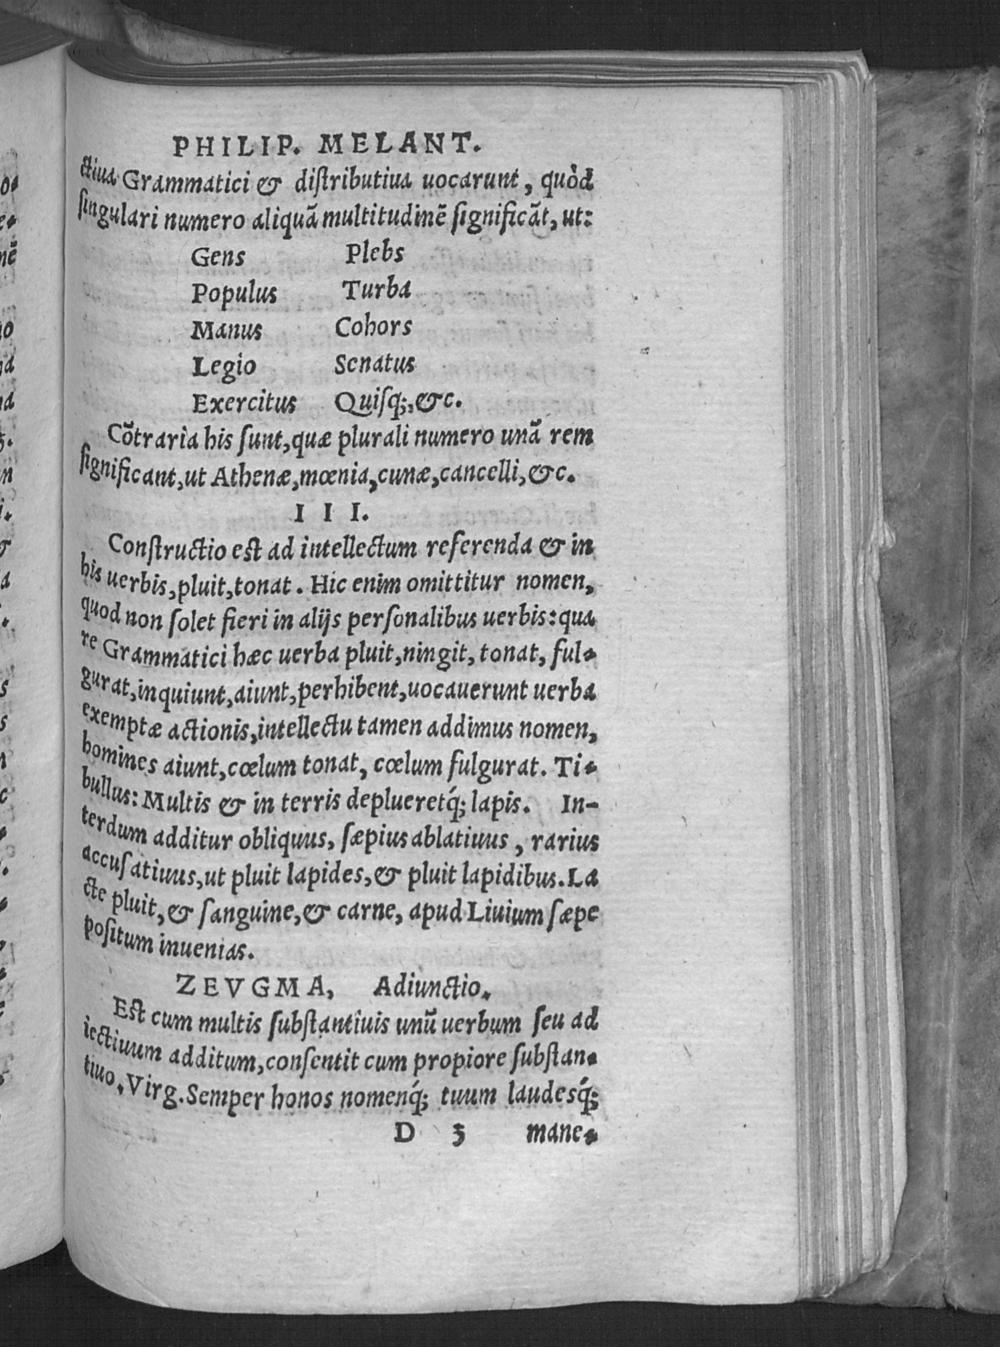 PHILIP. MELANT.
ctiua Grammatici & distributiua uocarunt, quòd
singulari numero aliquā multitudinē significāt, ut:
Gens Plebs
Populus Turba
Manus Cohors
Legio Senatus
Exercitus Quisq;, &c.
Cōtraria his sunt, quæ plurali numero unā rem
significant, ut Athenæ, mœnia, cunæ, cancelli, &c.
III.
Constructio est ad intellectum referenda & in
his uerbis, pluit, tonat. Hic enim omittitur nomen,
quod non solet fieri in alijs personalibus uerbis: qua
re Grammatici hæc uerba pluit, ningit, tonat, ful-
gurat, inquiunt, aiunt, perhibent, uocauerunt uerba
exemptæ actionis, intellectu tamen addimus nomen,
homines aiunt, cœlum tonat, cœlum fulgurat. Ti-
bullus: Multis & in terris deplueretq́; lapis. In-
terdum additur obliquus, sæpius ablatiuus, rarius
accusatiuus, ut pluit lapides, & pluit lapidibus. La
cte pluit, & sanguine, & carne, apud Liuium sæpe
positum inuenias.
ZEVGMA, Adiunctio.
Est cum multis substantiuis unū uerbum seu ad
iectiuum additum, consentit cum propiore substan-
tiuo. Virg. Semper honos nomenq́; tuum laudesq́;
D 3 mane-